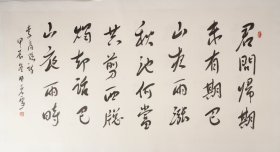 君問歸期
未有期巴
山夜雨漲
秋池何當
共剪西牕
燭却話巴
山夜雨時
李商隱詩
甲辰